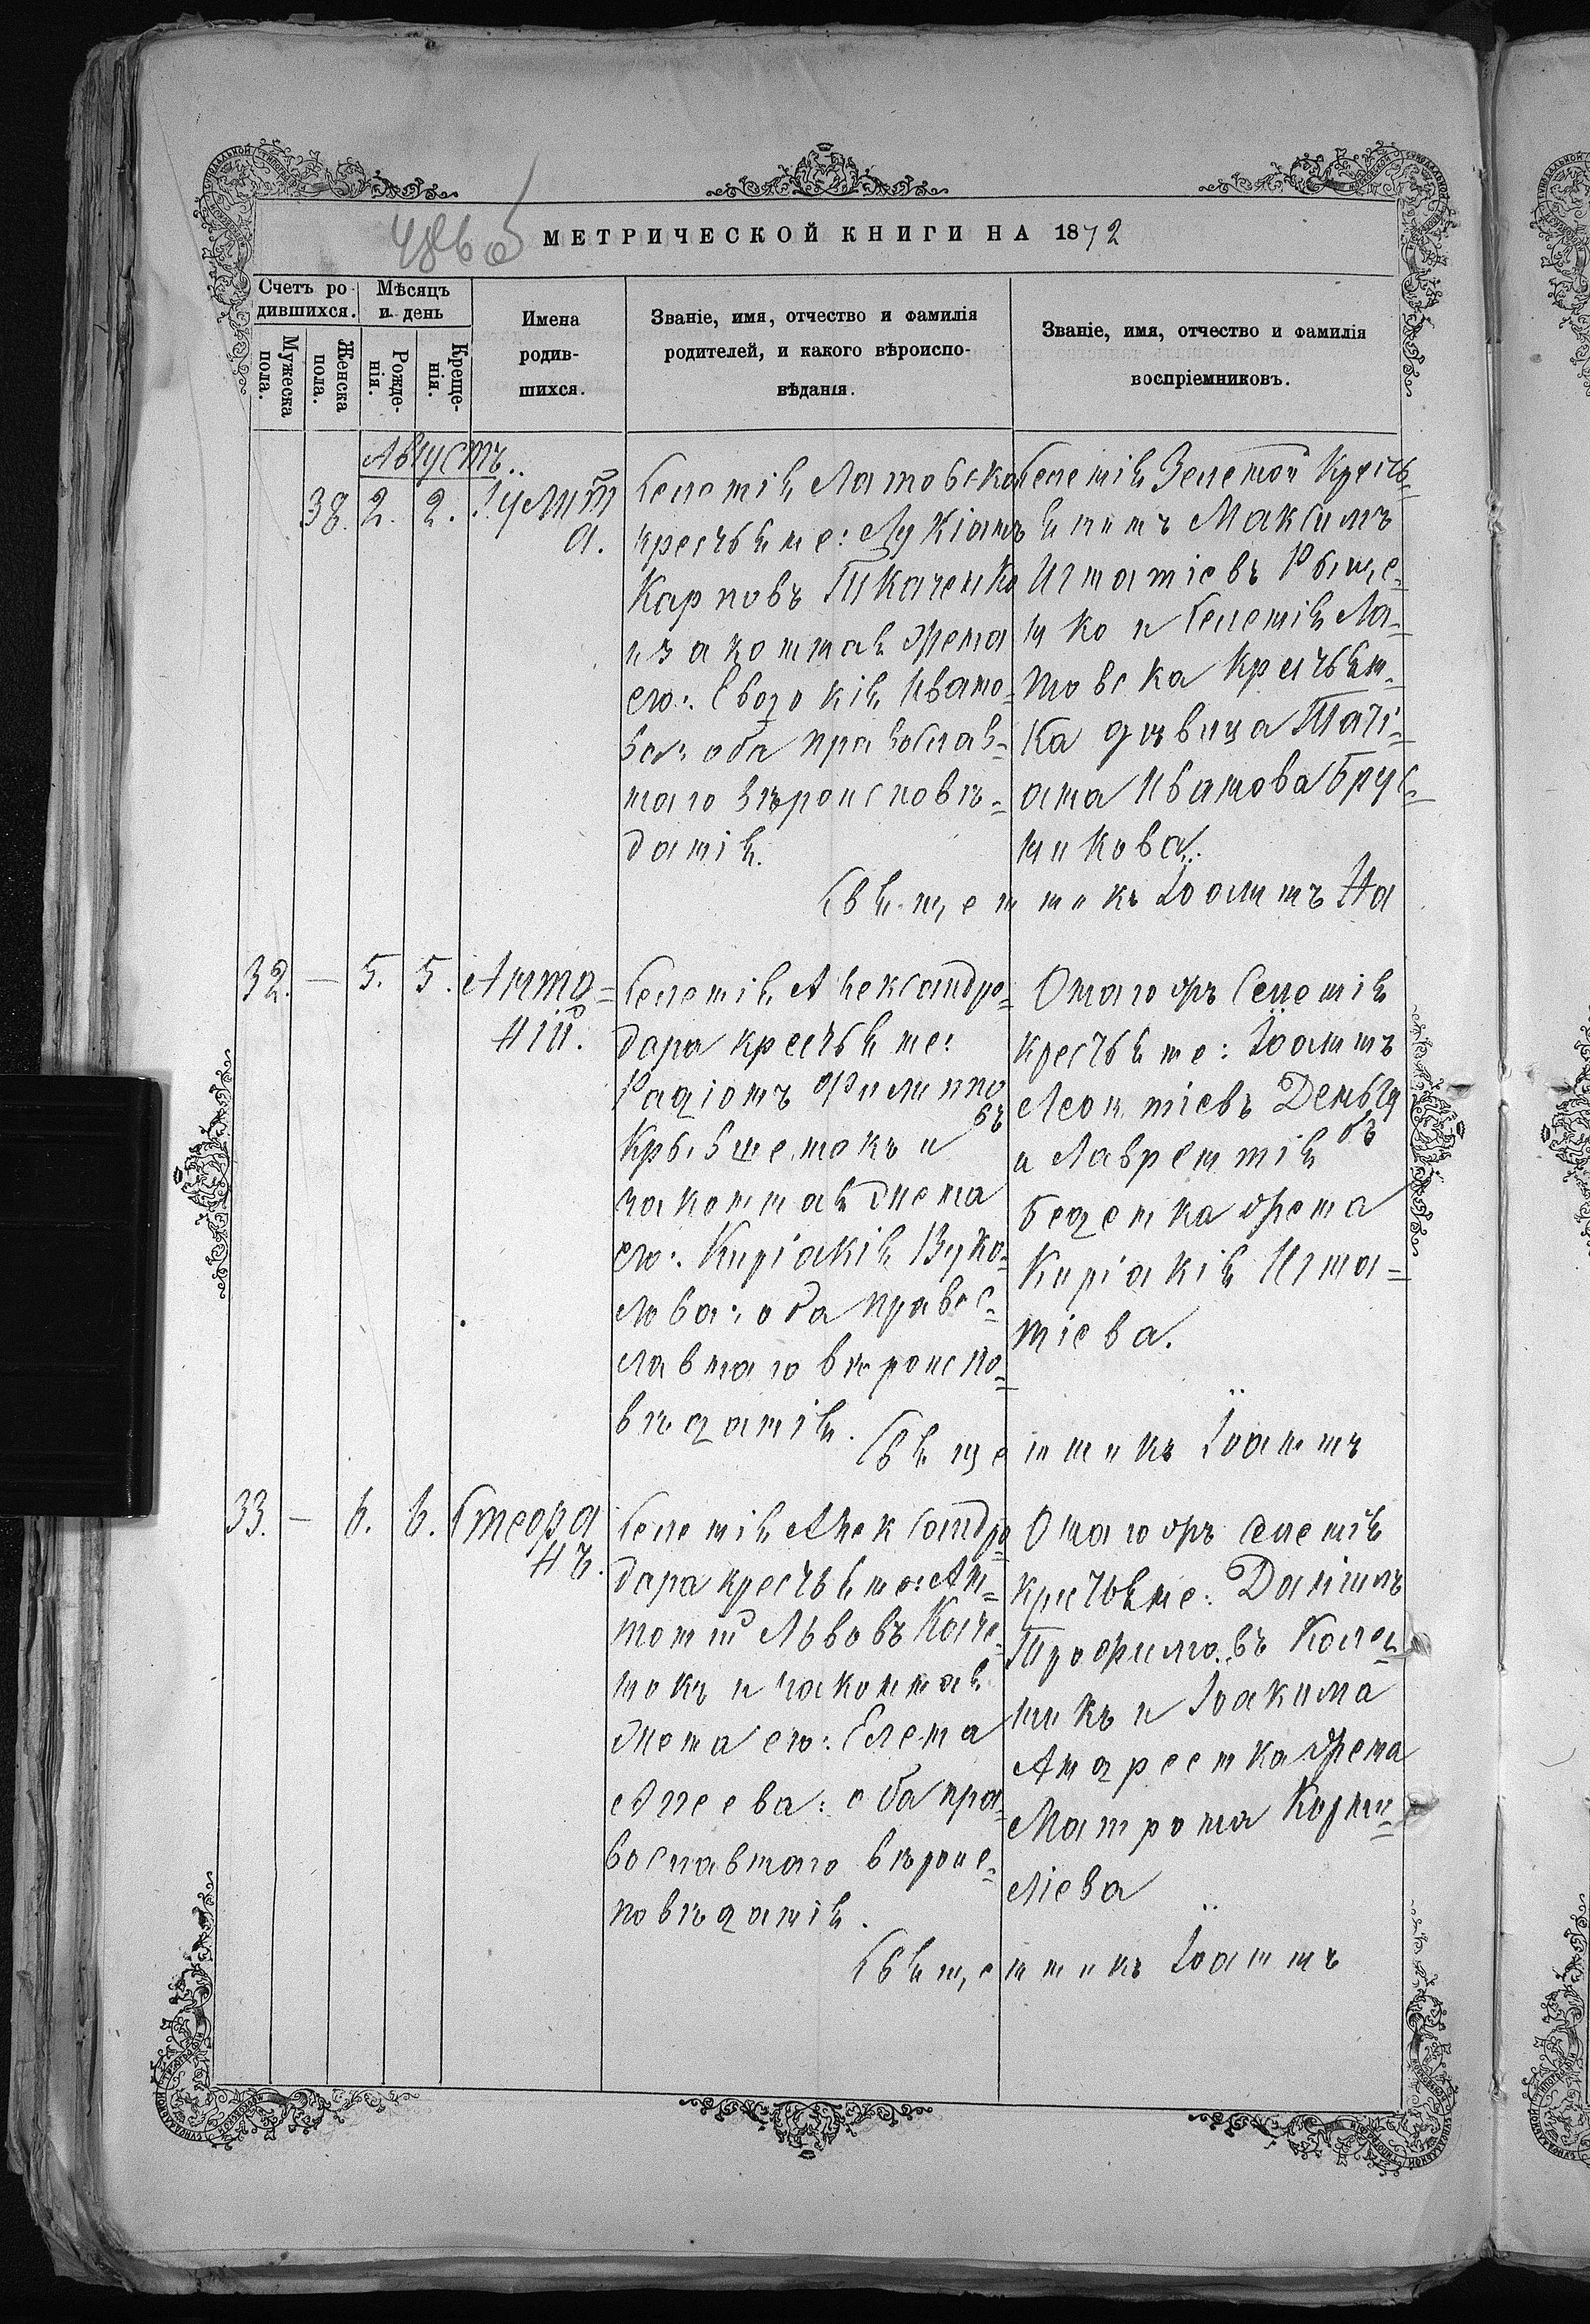 МЕТРИЧЕСКОЙ КНИГИ НА 1872
Счетъ ро-
дившихся.
Мужеска
пола.
Женска
пола.
Мѣсяцъ
и день
Рожде-
нія.
Креще-
нія.
Имена
родив-
шихся.
Званіе, имя, отчество и фамилія
родителей, и какого вѣроиспо-
вѣданія.
Званіе, имя, отчество и фамилія
воспріемниковъ.
Августъ
38. 2. 2. Іулитт
а.
Селенія Латовка
крестьяне: Лукіанъ
Карповъ Ткаченко
и законная жена
его: Евдокія Ивано-
ва: оба православ-
наго вѣроисповѣ-
данія.
Селенія Зеленой Кресть-
янинъ Максимъ
Игнатіевъ Рыще-
нко и Селенія Ла-
товка Крестьян-
ка дѣвица Таті-
ана Иванова Брус-
никова.
Священникъ Іоаннъ На
32. — 5. 5. Анто-
ній.
Селенія Александро-
дара крестьяне:
Радіонъ Филиппо
въ
Крывшенокъ и
законная жена
его: Киріакія Вуко-
лова: оба правос-
лавнаго вѣроиспо-
вѣданія.
Онагожъ Селенія
крестьяне: Іоаннъ
Леонтіевъ
и Лаврентія
жена
Киріакія Игна-
тіева.
Священникъ Іоаннъ
33. — 6. 6. Стефа
нъ.
Селенія Александро
дара крестьяне: Ан-
тоній Львовъ Каче-
нокъ и законная
жена его: Елена
Агеева: оба пра-
вославнаго вѣроис-
повѣданія.
Онагожъ селенія
крестьяне: Даніилъ
Трофимовъ
никъ и Іоакима
Андреенка жена
Матрона Корни-
ліева
Священникъ Іоаннъ